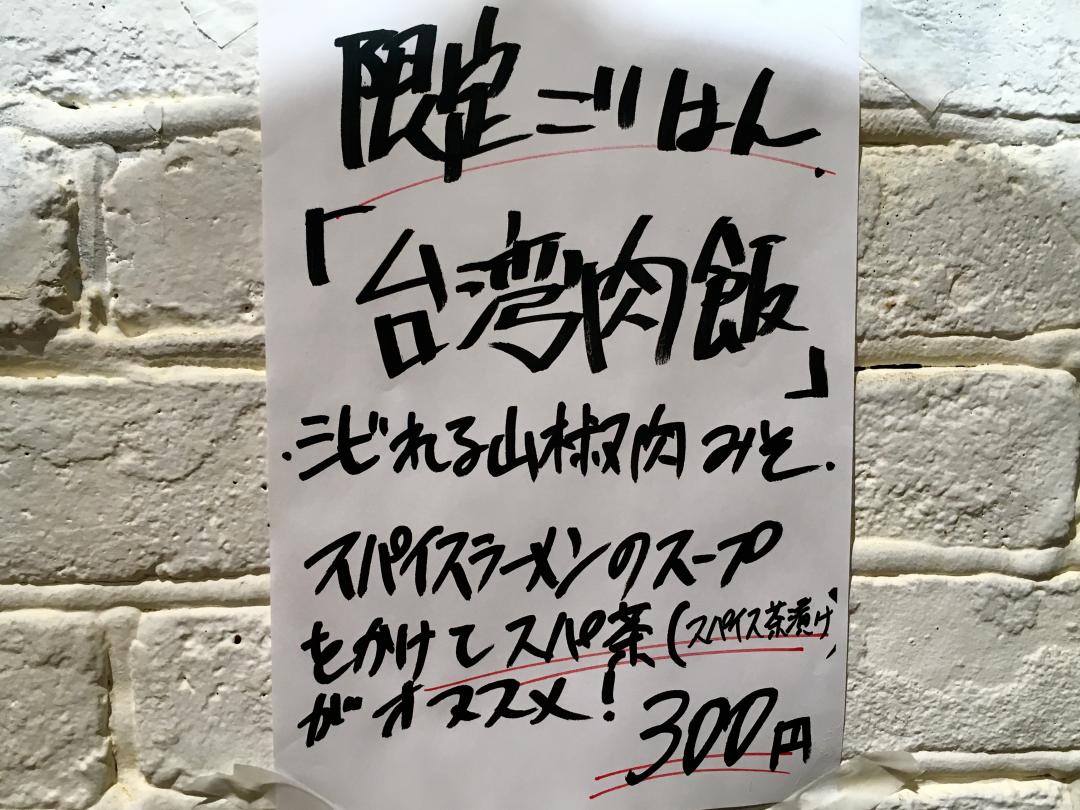 限定ごはん
「台湾肉飯」
・シビれる山椒肉みそ・
スパイスラーメンのスープ
をかけてスパ茶(スパイス茶漬け)
がオススメ!
300円